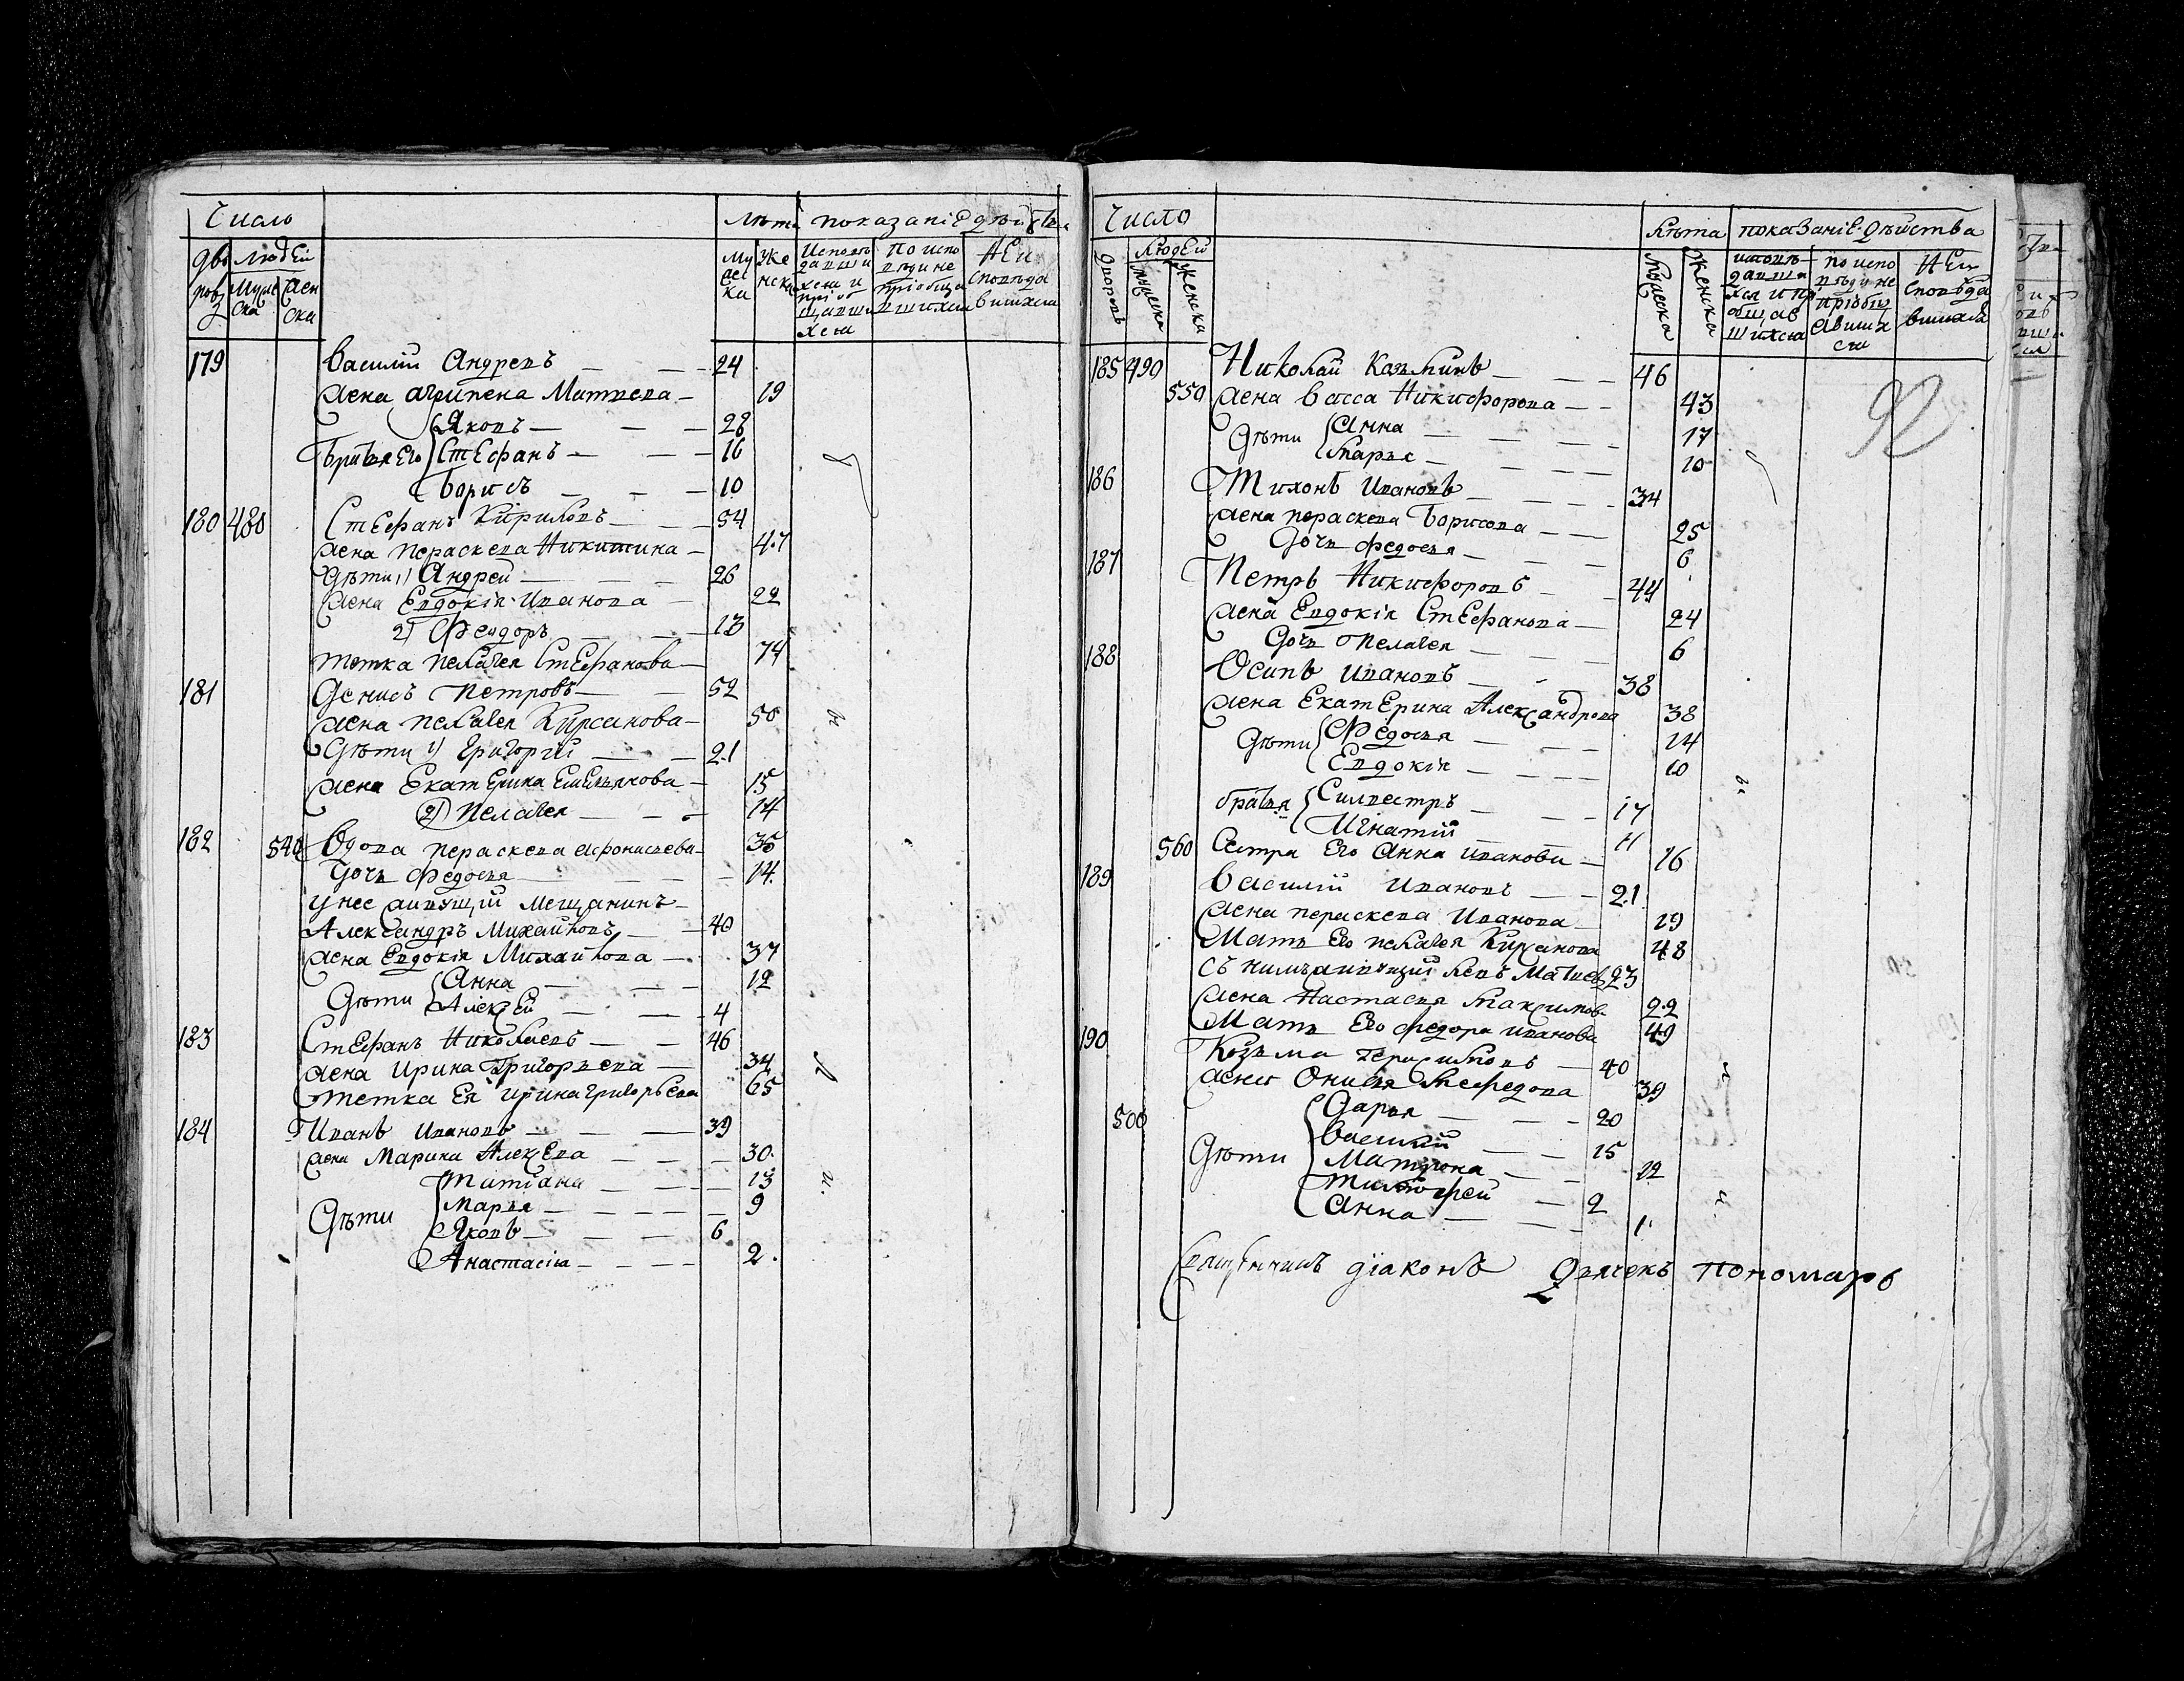 Число
Лѣта показаніе дѣйства
дворовъ людей
мужеска женска
мужеска женска
Исповѣдавшихся и пріобщавшихся
по исповѣди не пріобщавшихся
не исповѣдавшихся
179 Василій Андреевъ 24
жена Агрипена Матвеева 19
Яковъ 28
братья его Стефанъ 16
Борисъ 10
180 480 Стефанъ Кириловъ 54
жена Параскева Никитина 47
дѣти 1) Андрей 26
жена Евдокія Иванова 22
2) Феодоръ 13
тетка Пелагея Стефанова 74
181 Денисъ Петровъ 52
жена Пелагея Кирсанова 50
дѣти 1) Григорій 21
жена Екатерина Емельянова 15
2) Пелагея 14
182 540 Вдова Параскева Афонасьева 36
дочь Федосья 14
у нее живущій мещанинъ
Александръ Михайловъ 40
жена Евдокія Михайлова 37
Анна 12
дѣти Алексей 4
183 Стефанъ Николаевъ 46
жена Ирина Григорьева 34
тетка ея Ирина Григорьева 65
184 Иванъ Ивановъ 39
жена Марина Алексева 30
Татіана 13
Марья 9
дѣти Яковъ 6
Анастасія 2
Число
Лѣта показаніе дѣйства
дворовъ людей
мужеска женска
мужеска женска
исповѣдавшихся и пріобщавшихся
по исповѣди не пріобщавшихся
не исповѣдавшихся
92
185 490 Николай Козьминъ 46
550 жена Васса Никифорова 43
дѣти Анна 17
Марья 10
186 Тихонъ Ивановъ 34
жена Параскева Борисова 25
дочь Федосья 6
187 Петръ Никифоровъ 44
жена Евдокія Стефанова 24
дочь Пелагея 6
188 Осипъ Ивановъ 38
жена Екатерина Александрова 38
дѣти Федосья 14
Евдокія 10
братья Силвестръ 17
Игнатій 11
560 Сестра его Анна Иванова 16
189 Василій Ивановъ 21
жена Параскева Иванова 19
Мать его Пелагея Кирсанова 48
съ нимъ живущій Левъ Матвеевъ 23
жена Настасья Максимов. 22
Мать его Федора Иванова 49
190 Козьма Герасимовъ 40
жена Онисья Мефедова 39
500 Дарья 20
Василій 15
дѣти Матрона 12
Тимофей 2
Анна 1
Священникъ діаконъ дьячекъ пономарь